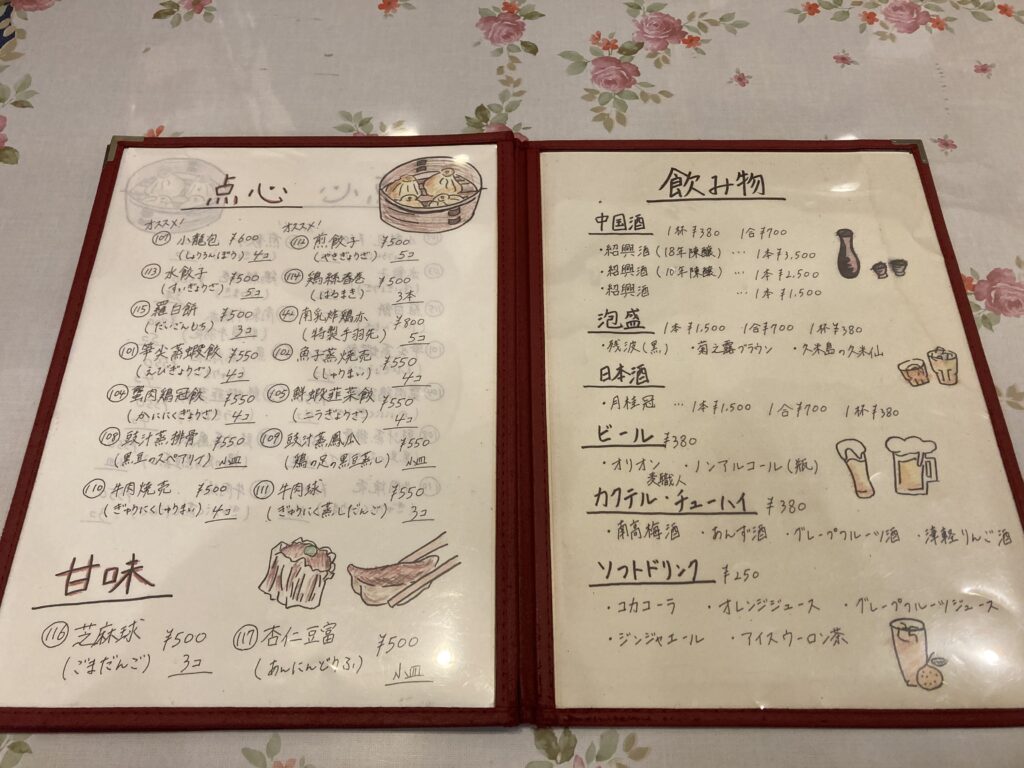 点心
オススメ! オススメ!
107 小龍包 ¥600 112 煎餃子 ¥500
(しょうろんぽう) 4コ (やきぎょうざ) 5コ
113 水餃子 ¥500 114 鶏絲春巻 ¥500
(すいぎょうざ) 5コ (はるまき) 3本
115 羅白餅 ¥500 南乳炸鶏亦 ¥800
(だいこんもち) 3コ (特製手羽先) 5コ
101 笋尖蒸蝦飲 ¥550 102 魚子蒸焼売 ¥550
(えびぎょうざ) 4コ (しゅうまい) 4コ
104 蟹肉鶏冠餃 ¥550 105 鮮蝦韮菜餃 ¥550
(かににくぎょうざ) 4コ (ニラぎょうざ) 4コ
108 豉汁蒸排骨 ¥550 109 豉汁蒸鳳爪 ¥550
(黒豆のスペアリブ) 小皿 (鶏の足の黒豆蒸し) 小皿
110 牛肉焼売 ¥500 111 牛肉球 ¥550
(ぎゅうにくしゅうまい) 4コ (ぎゅうにく蒸しだんご) 3コ
甘味
116 芝麻球 ¥500 117 杏仁豆富 ¥500
(ごまだんご) 3コ (あんにんどうふ) 小皿
飲み物
中国酒 1杯¥380 1合¥700
・紹興酒(18年陳醸) … 1本¥3,500
・紹興酒(10年陳醸) … 1本¥2,500
・紹興酒 … 1本¥1,500
泡盛 1本¥1,500 1合¥700 1杯¥380
・残波(黒) ・菊之露ブラウン ・久米島の久米仙
日本酒
・月桂冠 … 1本¥1,500 1合¥700 1杯¥380
ビール ¥380
・オリオン ・ノンアルコール(瓶)
麦職人
カクテル・チューハイ ¥380
・南高梅酒 ・あんず酒 ・グレープフルーツ酒 ・津軽りんご酒
ソフトドリンク ¥250
・コカコーラ ・オレンジジュース ・グレープフルーツジュース
・ジンジャエール ・アイスウーロン茶